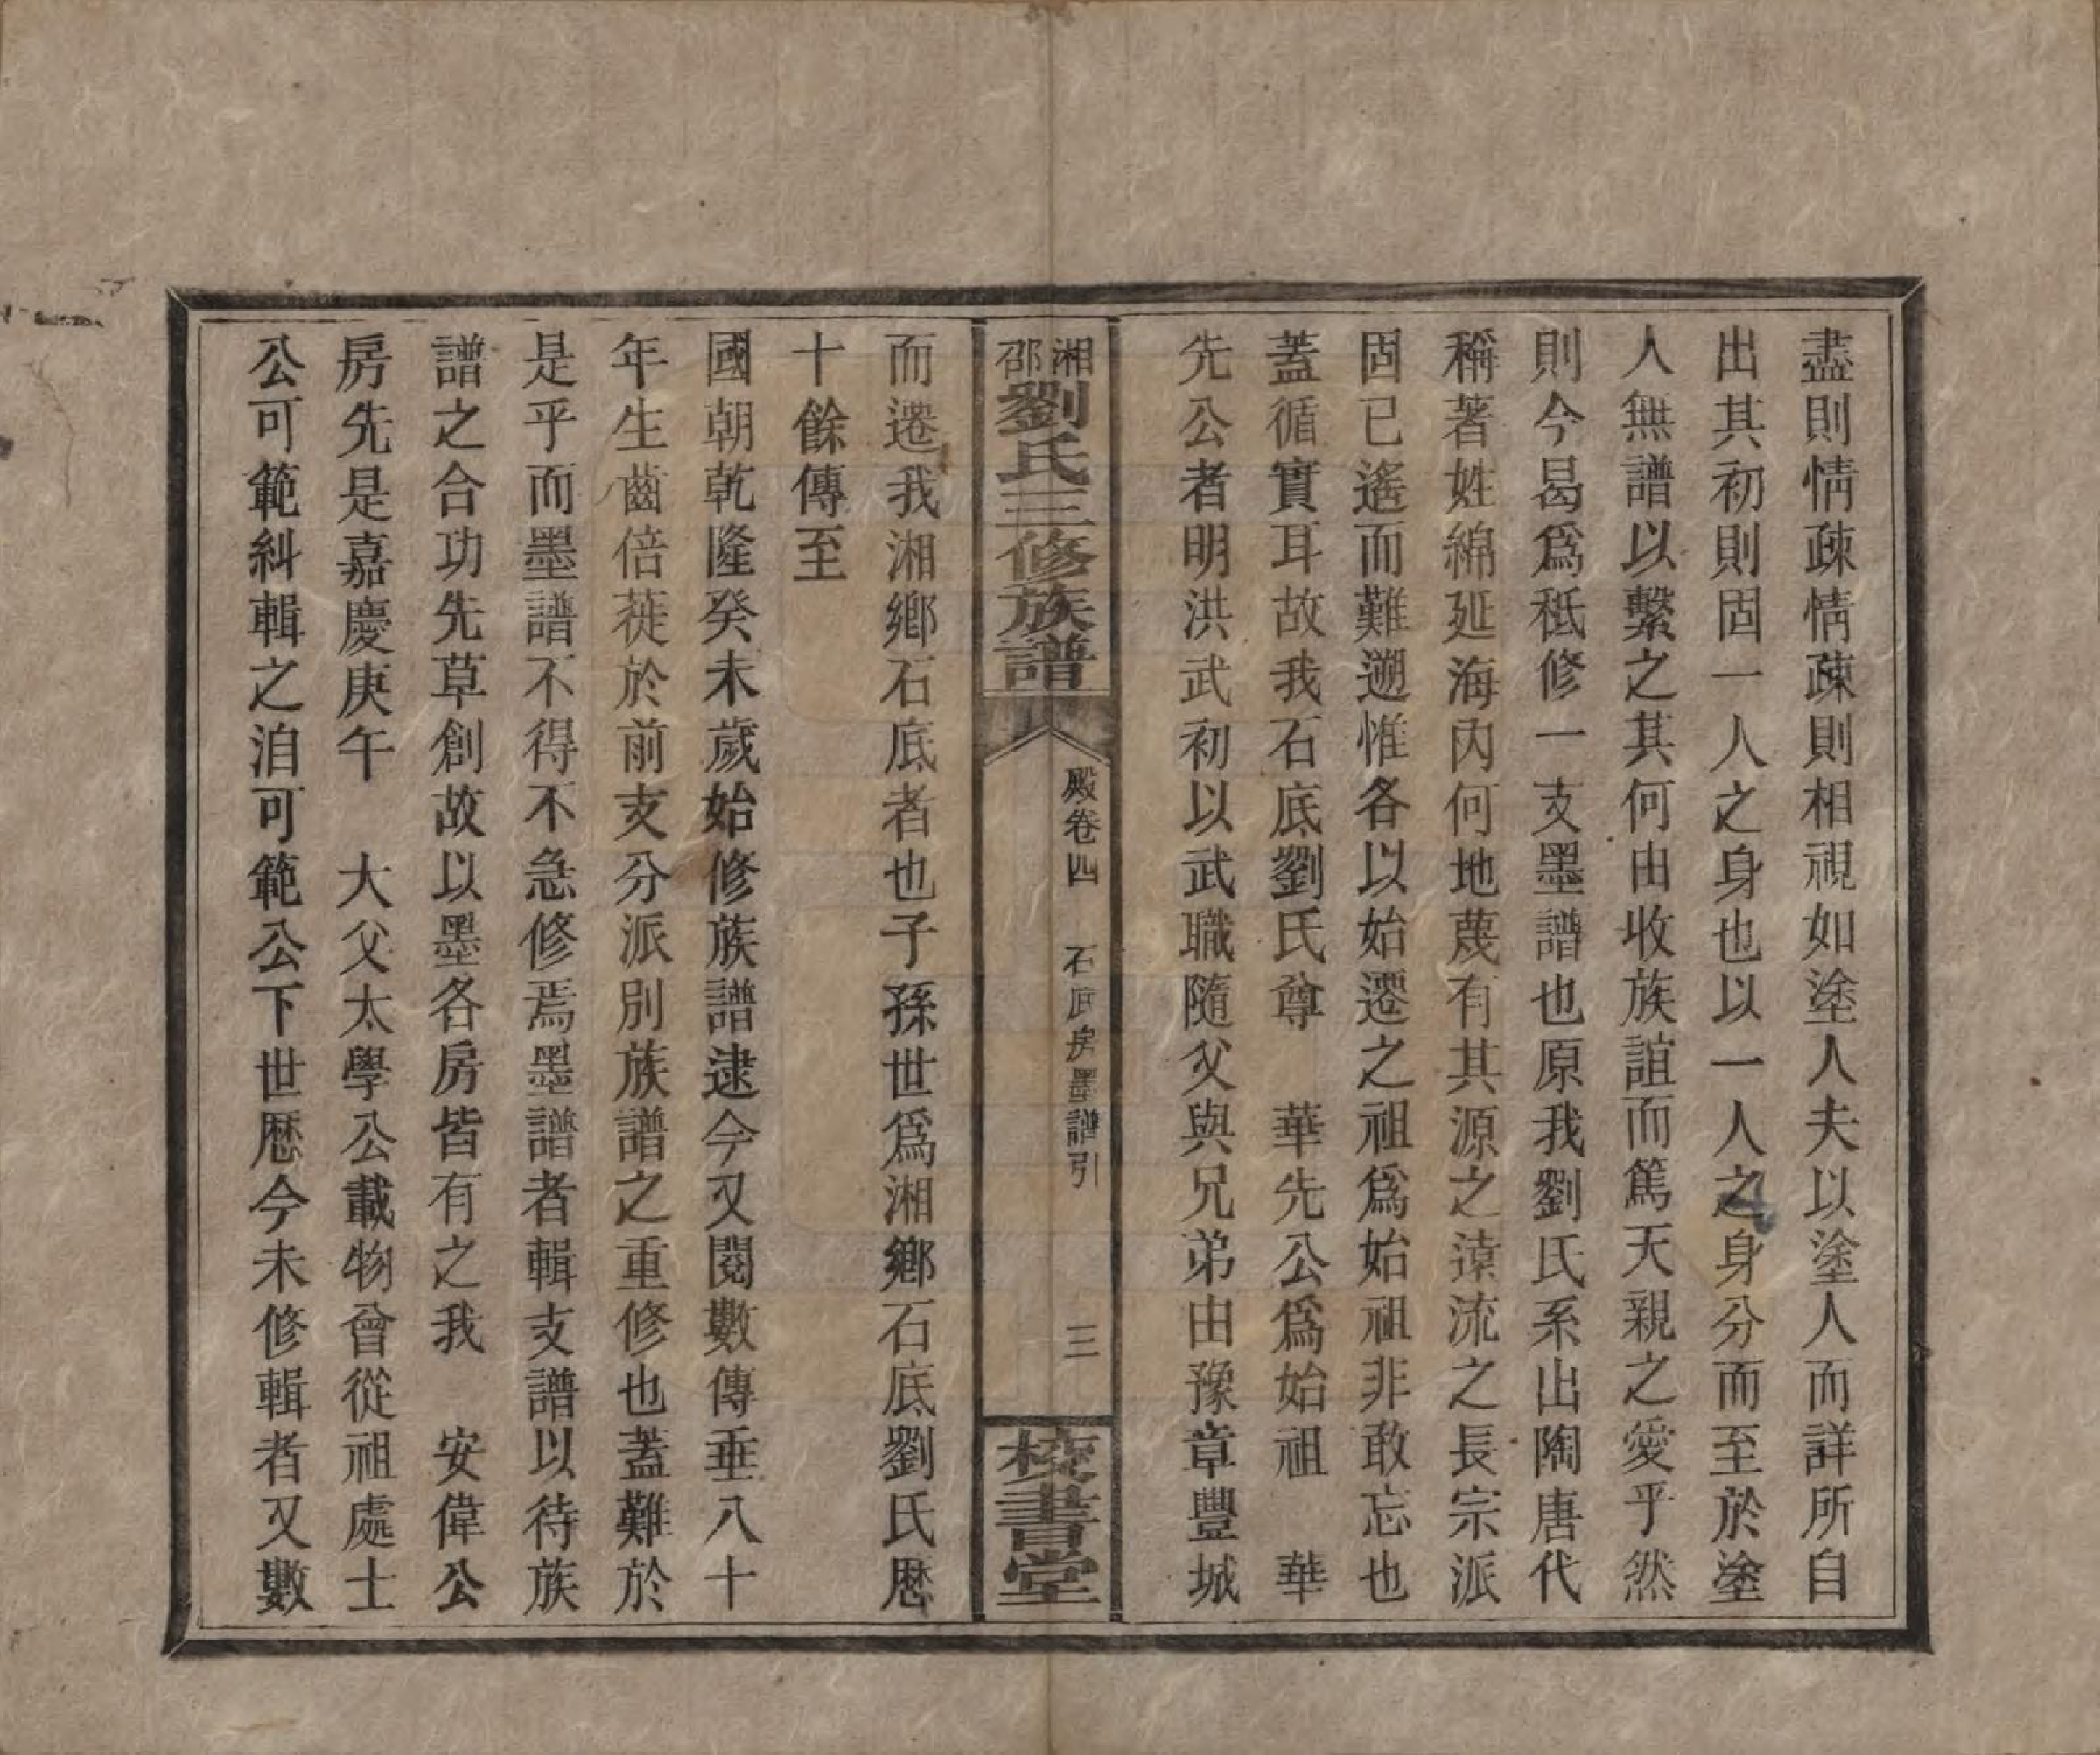 盡則情疎情疎則相視如塗人夫以塗人而詳所自
出其初則固一人之身也以一人之身分而至於塗
人無譜以繫之其何由收族誼而篤天親之愛乎然
則今曷爲秪修一支墨譜也原我劉氏系出陶唐代
稱著姓綿延海內何地蔑有其源之遠流之長宗派
固已遙而難遡惟各以始遷之祖爲始祖非敢忘也
蓋循實耳故我石底劉氏尊　華先公爲始祖　華
先公者明洪武初以武職隨父與兄弟由豫章豐城
湘邵劉氏三修族譜
殿卷四　石底房墨譜引　三
校書堂
而遷我湘鄉石底者也子孫世爲湘鄉石底劉氏歷
十餘傳至
國朝乾隆癸未歲始修族譜逮今又閱數傳垂八十
年生齒倍蓰於前支分派別族譜之重修也蓋難於
是乎而墨譜不得不急修焉墨譜者輯支譜以待族
譜之合功先草創故以墨各房皆有之我　安偉公
房先是嘉慶庚午　大父太學公載物曾從祖處士
公可範糾輯之洎可範公下世歷今未修輯者又數